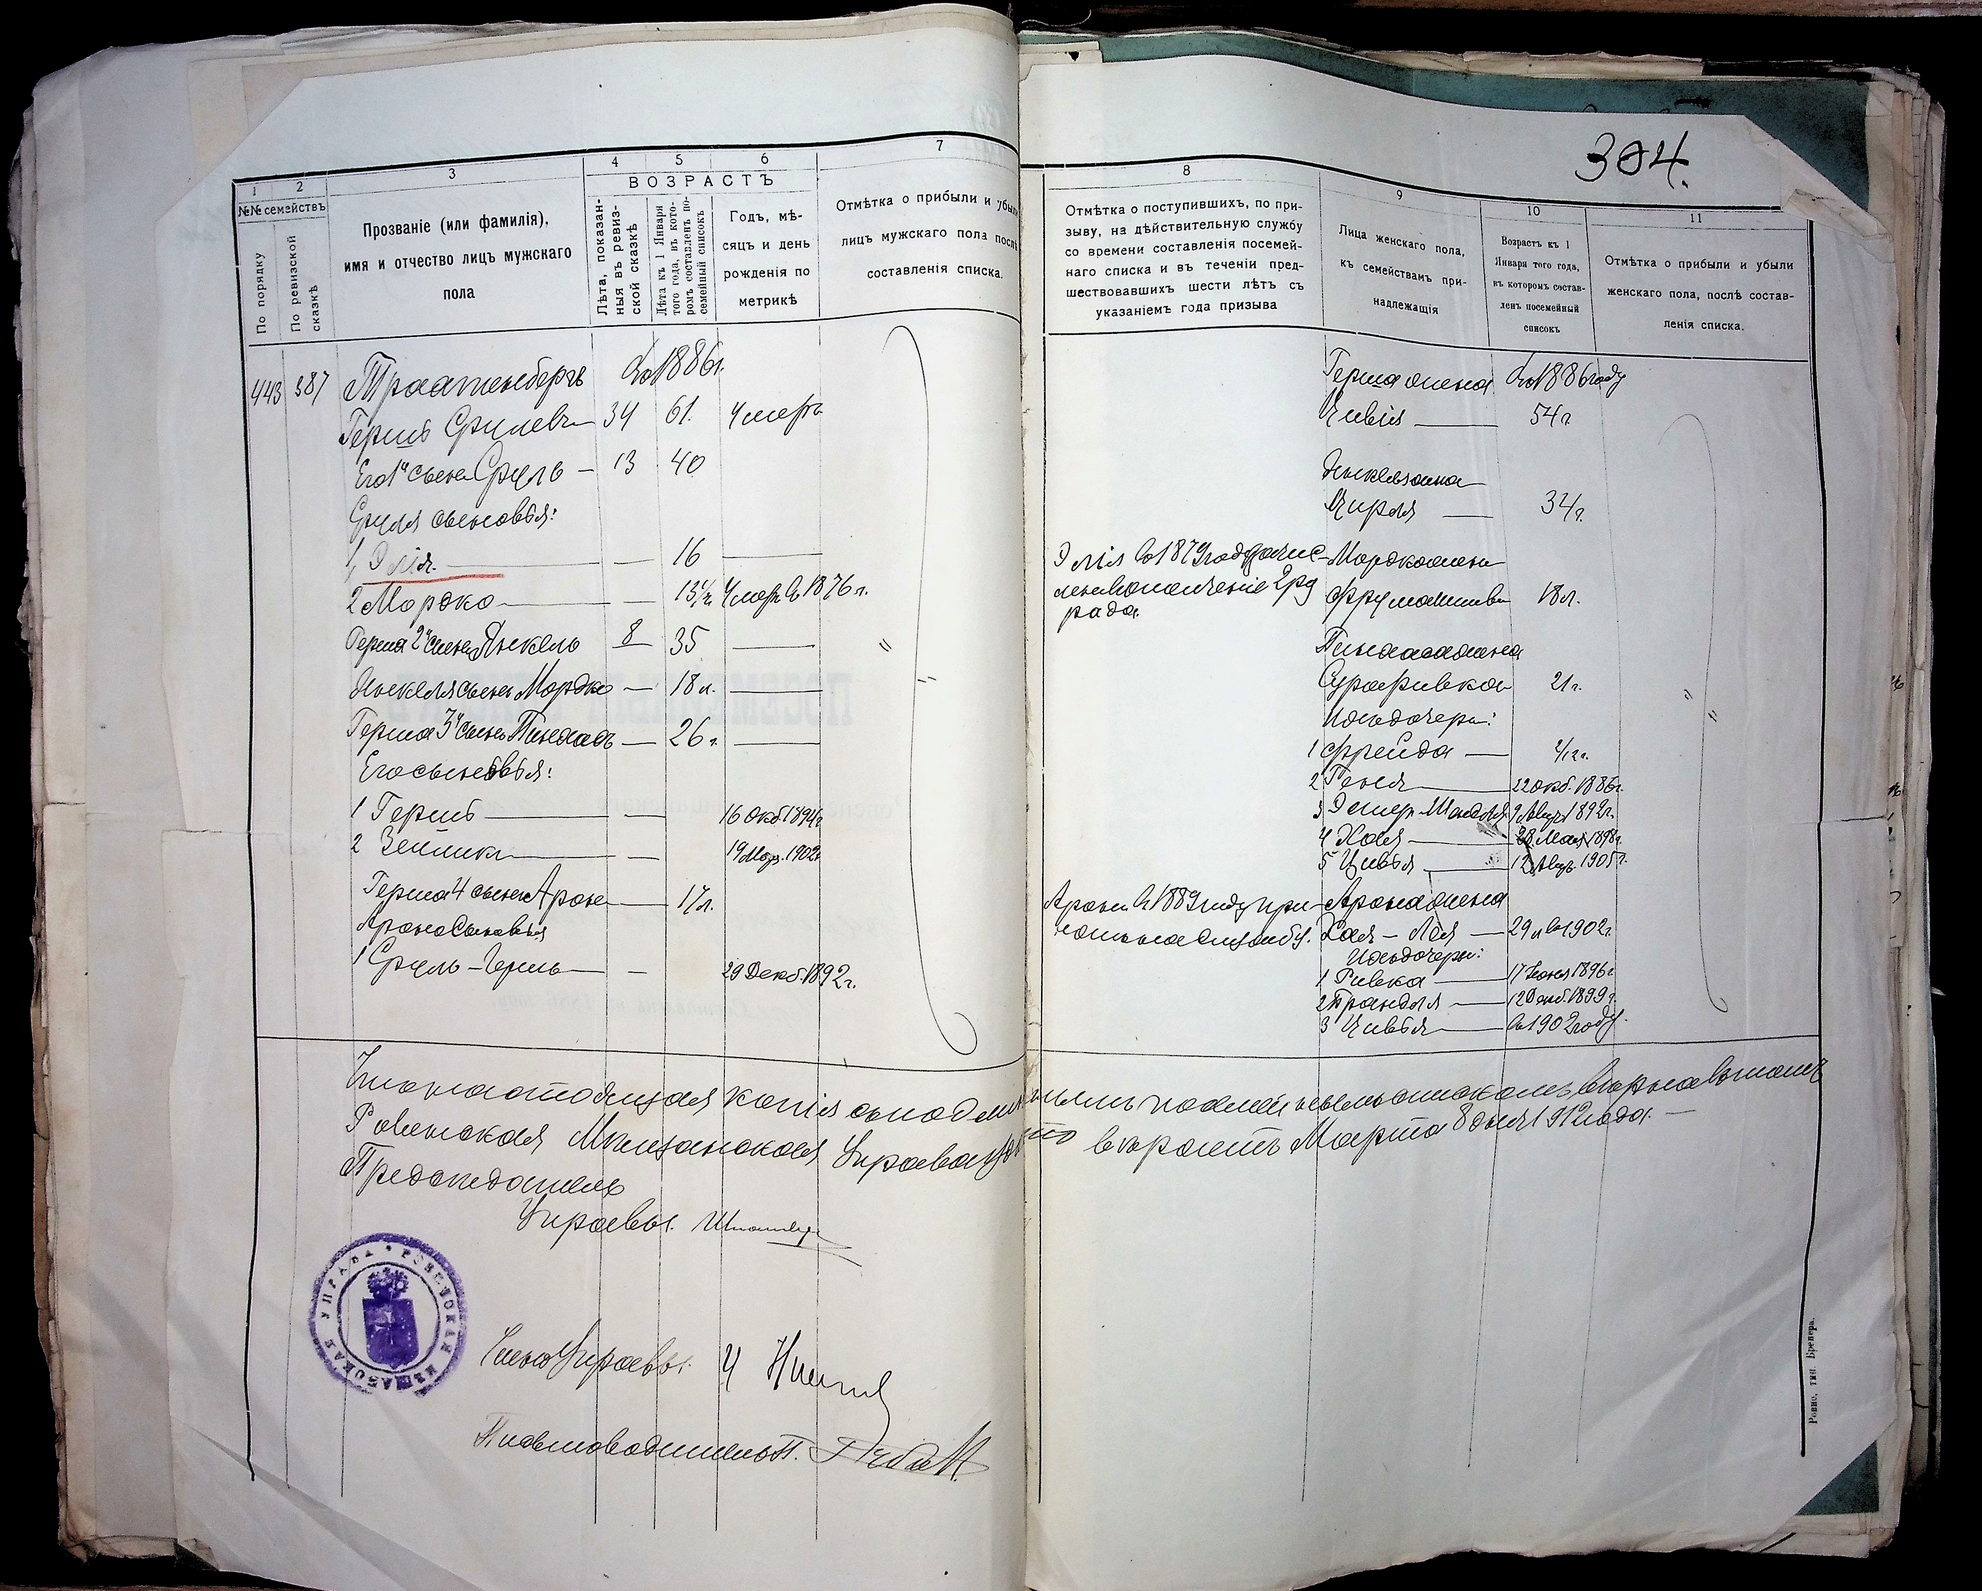 304.
1
2
3
4
5
6
7
ВОЗРАСТЪ
№№ семействъ
По порядку
По ревизской сказкѣ
Прозваніе (или фамилія),
имя и отчество лицъ мужскаго
пола
Лѣта, показан-
ныя въ ревиз-
ской сказкѣ
Лѣта къ 1 Января
того года, въ кото-
ромъ составленъ по-
семейный списокъ
Годъ, мѣ-
сяцъ и день
рожденія по
метрикѣ
Отмѣтка о прибыли и убыли
лицъ мужскаго пола послѣ
составленія списка.
443 387 Траатенбергъ Въ 1886 г.
Гершъ Срулевъ 34 61. Умеръ
Его 1й сынъ Сруль – 13 40
Сруля сыновья:
1 Эліл. — 16 —
2 Мордко — 13 1/2 Умеръ въ 1876 г.
Герша 2й сынъ Янкель 8 35 —
Янкеля сынъ Мордко — 18 л. —
Герша 3й сынъ Пинхасъ — 26 г. —
Его сыновья:
1 Гершъ — 16 Окт. 1894 г.
2 Зейликъ — 19 Мар. 1902 г.
Герша 4 сынъ Аронъ — 17 л.
Арона сыновья
1 Сруль-Герш — 29 Декб. 1892 г.
8
9
10
11
Отмѣтка о поступившихъ, по при-
зыву, на дѣйствительную службу
со времени составленія посемей-
наго списка и въ теченіи пред-
шествовавшихъ шести лѣтъ съ
указаніемъ года призыва
Лица женскаго пола,
къ семействамъ при-
надлежащія
Возрастъ къ 1
Января того года,
въ которомъ состав-
ленъ посемейный
списокъ
Отмѣтка о прибыли и убыли
женскаго пола, послѣ состав-
ленія списка.
Герша жена Въ 1886 году
Цивія — 54 г.
Янкеля жена
Цирля — 34 г.
Эліл въ 1879 году зачис- Мордка жена
ленъ въ ополченіе 2 раз Фрума 18 л.
ряда
Пинхаса жена
Сура Ривка 21 г.
Ихъ дочери:
1 Фрейда —
2 Геня — 22 окт. 1886 г.
3 Эстер Шандля 9 Авг. 1892 г.
4 Хая — 28 Мая 1898 г.
5 Цивья — 12 Авг. 1905 г.
Аронъ въ 1889 году при- Арона жена
нятъ на службу. Хая – Лея — 29 л въ 1902 г.
Ихъ дочери:
1 Ривка — 17 Іюня 1896 г.
2 Трандля — 12 Декб. 1899 г.
3 Цивья — въ 1902 году.
Что настоящая копія съ подлиннымъ посемейнымъ спискомъ вѣрна въ томъ
Ровенская Мѣщанская Управа удостовѣряетъ Марта 8 дня 1912 года. —
Предсѣдатель
Управы.
Членъ Управы.
Письмоводитель
РОВЕНСКАЯ МѢЩАНСКАЯ УПРАВА
Ровне, тип. Бренера.